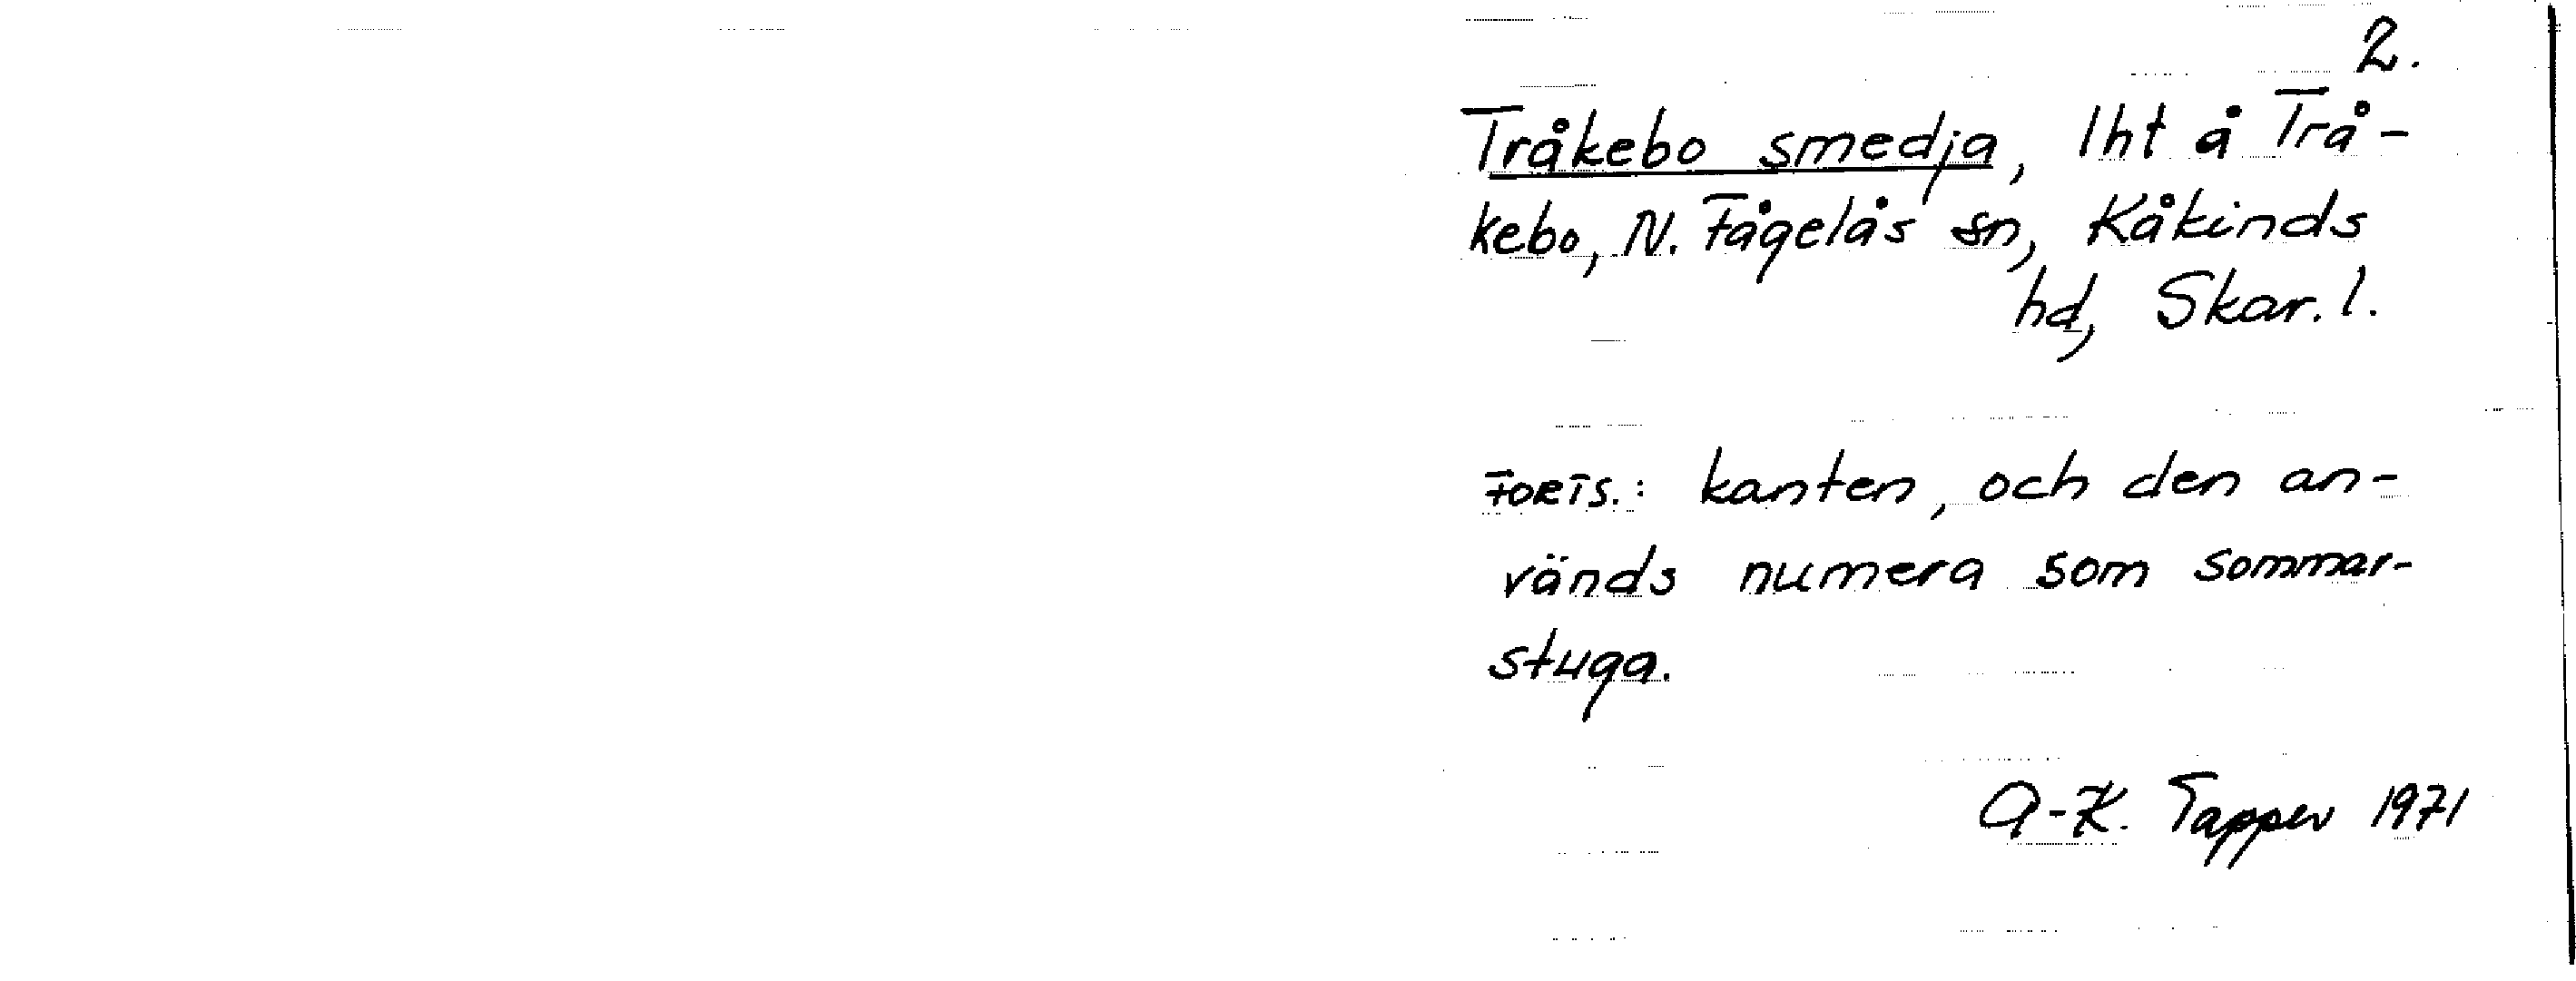 2.
Tråkebo smedja, lht å Trå-
kebo, N. Fågelås sn, Kåkinds
hd, Skar. l.
FORTS.: kanten, och den an-
vänds numera som sommar-
stuga.
A-K. Tapper 1971